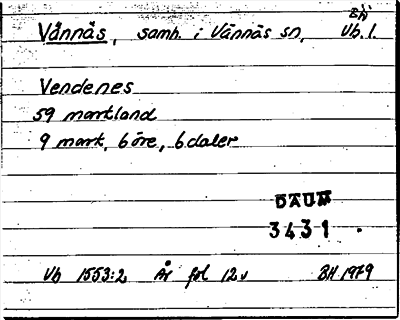 BH
Vännäs, samh. i Vännäs sn, Vb. l.
Vendenes
59 markland
9 mark, 6 öre, 6 daler
DAUM
3431.
Vb 1553:2 År fol 12v BH 1979